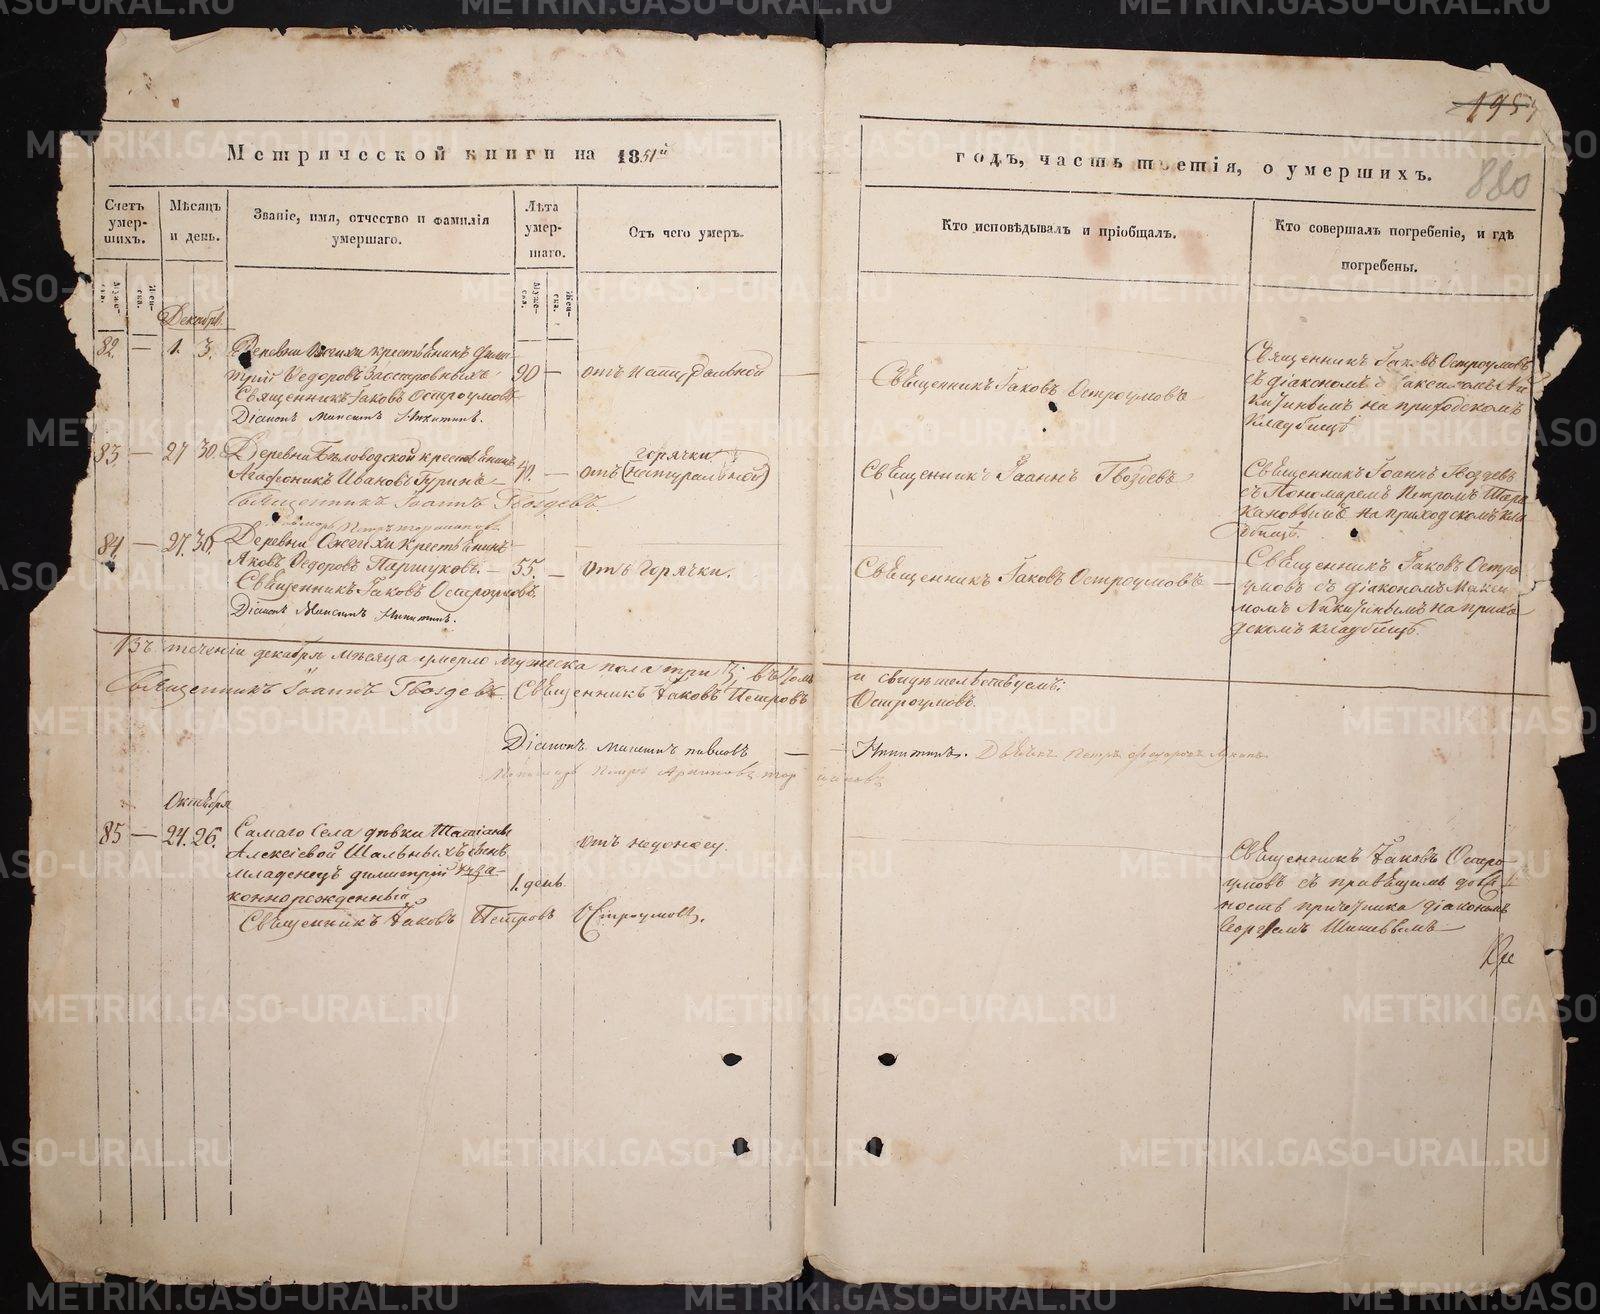 1957
880
Метрической книги на 1851й
годъ, часть третія, о умершихъ.
Счетъ умер-шихъ.
Мѣсяцъ и день.
Званіе, имя, отчество и фамилія умершаго.
Лѣта умер-шаго.
Отъ чего умеръ.
Кто исповѣдывалъ и пріобщалъ.
Кто совершалъ погребеніе, и гдѣ погребены.
Муже-ска.
Жен-ска.
Муже-ска.
Жен-ска.
Декабрь.
82. — 1. 3.
крестьянинъ Дими-
трій Ѳедоровъ Заостровныхъ
Священникъ Іаковъ Остроумовъ
Діаконъ Максимъ Никитинъ.
90 —
отъ натуральной
Священникъ Іаковъ Остроумовъ
Священникъ Іаковъ Остроумовъ
съ діакономъ Максимомъ Ни-
китинымъ на приходскомъ
кладбищѣ
83. — 27 30.
Деревни Бѣловодской крестьянинъ
Агафоникъ Ивановъ Гуринъ
Священникъ Іоаннъ Гвоздевъ
40. —
горячки
отъ (натуральной)
Священникъ Іоаннъ Гвоздевъ
Священникъ Іоаннъ Гвоздевъ
съ Пономаремъ Петромъ
на приходскомъ кла-
дбищѣ.
84. — 27. 30.
Деревни Ожегихи крестьянинъ
Яковъ Ѳедоровъ Паршуковъ.
Священникъ Іаковъ Остроумовъ.
Діаконъ Максимъ Никитинъ.
55. —
отъ горячки.
Священникъ Іаковъ Остроумовъ
Священникъ Іаковъ Остро-
умовъ съ діакономъ Макси-
момъ Никитинымъ на прихо-
дскомъ кладбищѣ.
Въ теченіи декабря мѣсяца умерло мужеска пола три 3; въ томъ и свидѣтельствуемъ:
Священникъ Іоаннъ Гвоздевъ. Священникъ Іаковъ Петровъ Остроумовъ.
Діаконъ Максимъ Павловъ — Никитинъ.
Октября
85 — 24. 26.
Самаго Села дѣвки Татіаны
Алексіевой Шальныхъ сынъ
младенецъ Димитрій неза-
коннорожденный
Священникъ Іаковъ Петровъ Остроумовъ.
1. день.
отъ недонос.
Священникъ Іаковъ Остро-
умовъ съ правящимъ долж-
ность причетника діакономъ
Георгіемъ